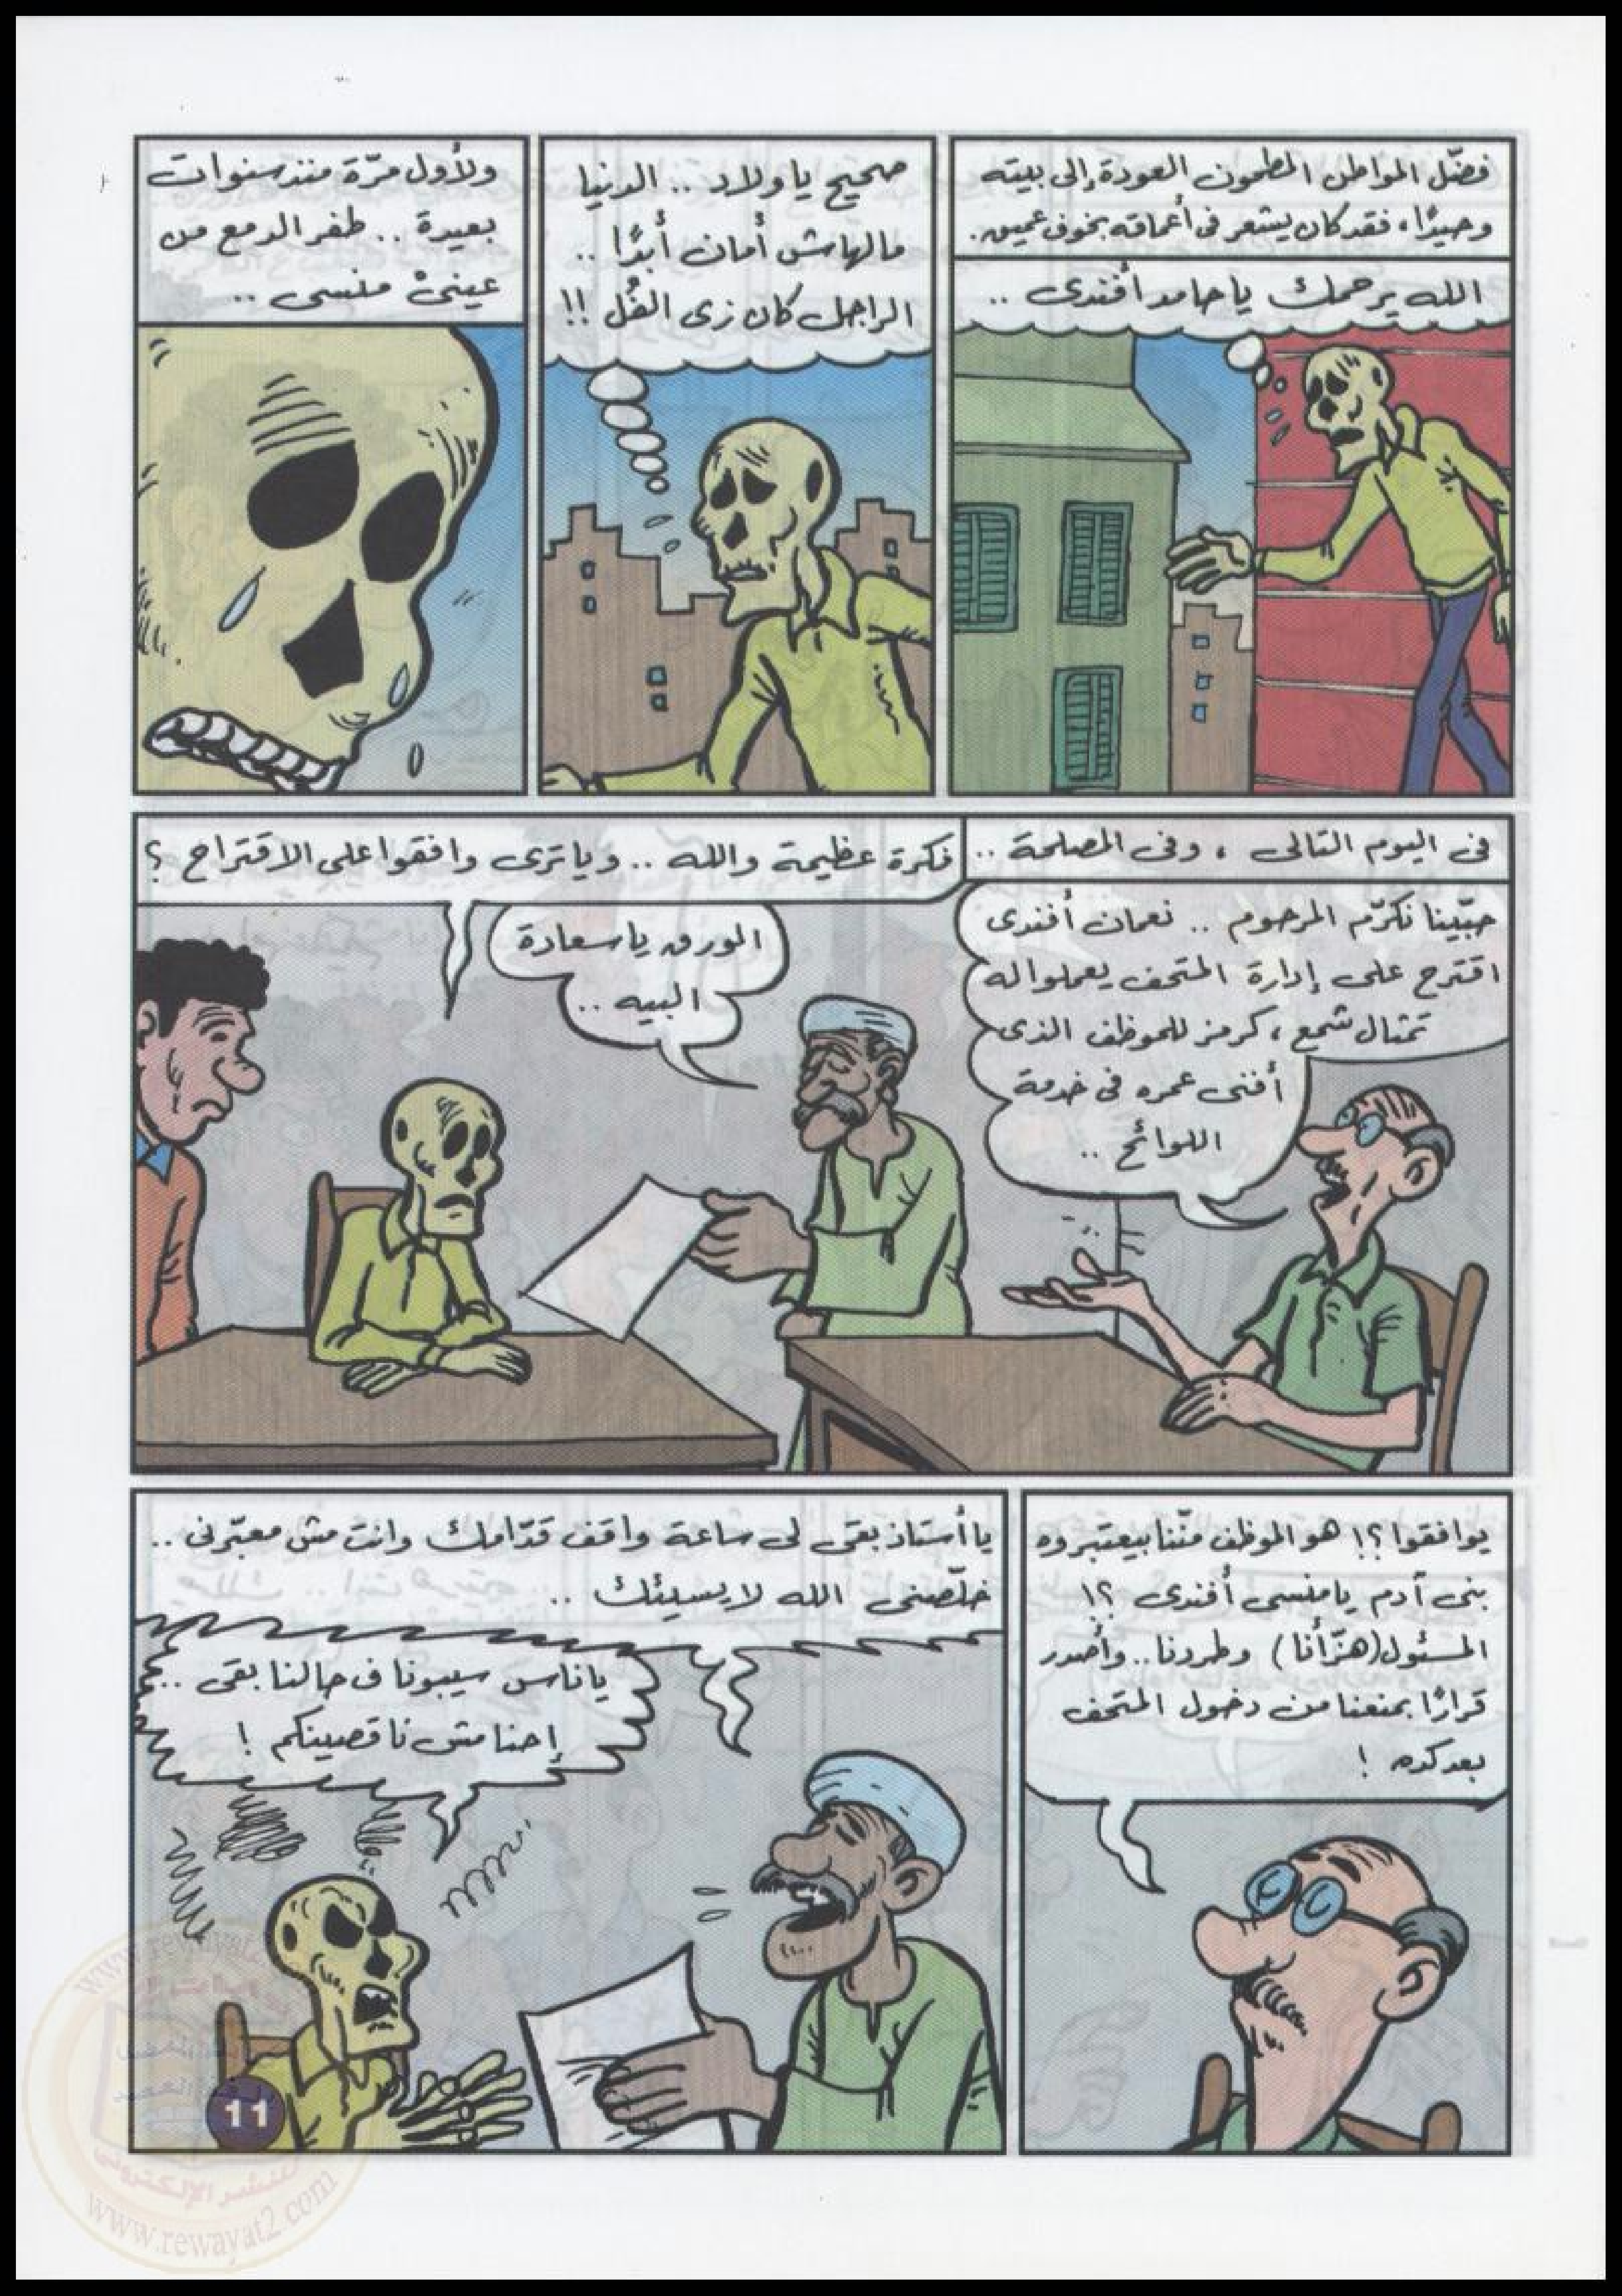 فضّل المواطن المطحون العودة إلى بيته
وحيدًا، فقد كان يشعر فى أعماقه بخوف عميق.
الله يرحمك يا حامد أفندى ..
صحيح يا ولاد .. الدنيا
مالهاش أمان أبدًا ..
الراجل كان زى الفُل !!
ولأول مرّة منذ سنوات
بعيدة .. طفر الدمع من
عينىْ منسى ..
فى اليوم التالى ، وفى المصلحة ..
حبّينا نكرّم المرحوم .. نعمان أفندى
اقترح على إدارة المتحف يعملوا له
تمثال شمع ، كرمز للموظف الذى
أفنى عمره فى خدمة
اللوائح ..
فكرة عظيمة والله .. ويا ترى وافقوا على الاقتراح ؟
الورق يا سعادة
البيه ..
يوافقوا ؟! هو الموظف منّنا بيعتبروه
بنى آدم يا منسى أفندى ؟!
المسئول (هزّأنا) وطردنا .. وأصدر
قرارًا بمنعنا من دخول المتحف
بعد كده !
يا أستاذ بقى لى ساعة واقف قدّامك وانت مش معبّرنى ..
خلّصنى الله لا يسيئك ..
يا ناس سيبونا ف حالنا بقى ..
إحنا مش ناقصينكم !
11
www.rewayat2.com